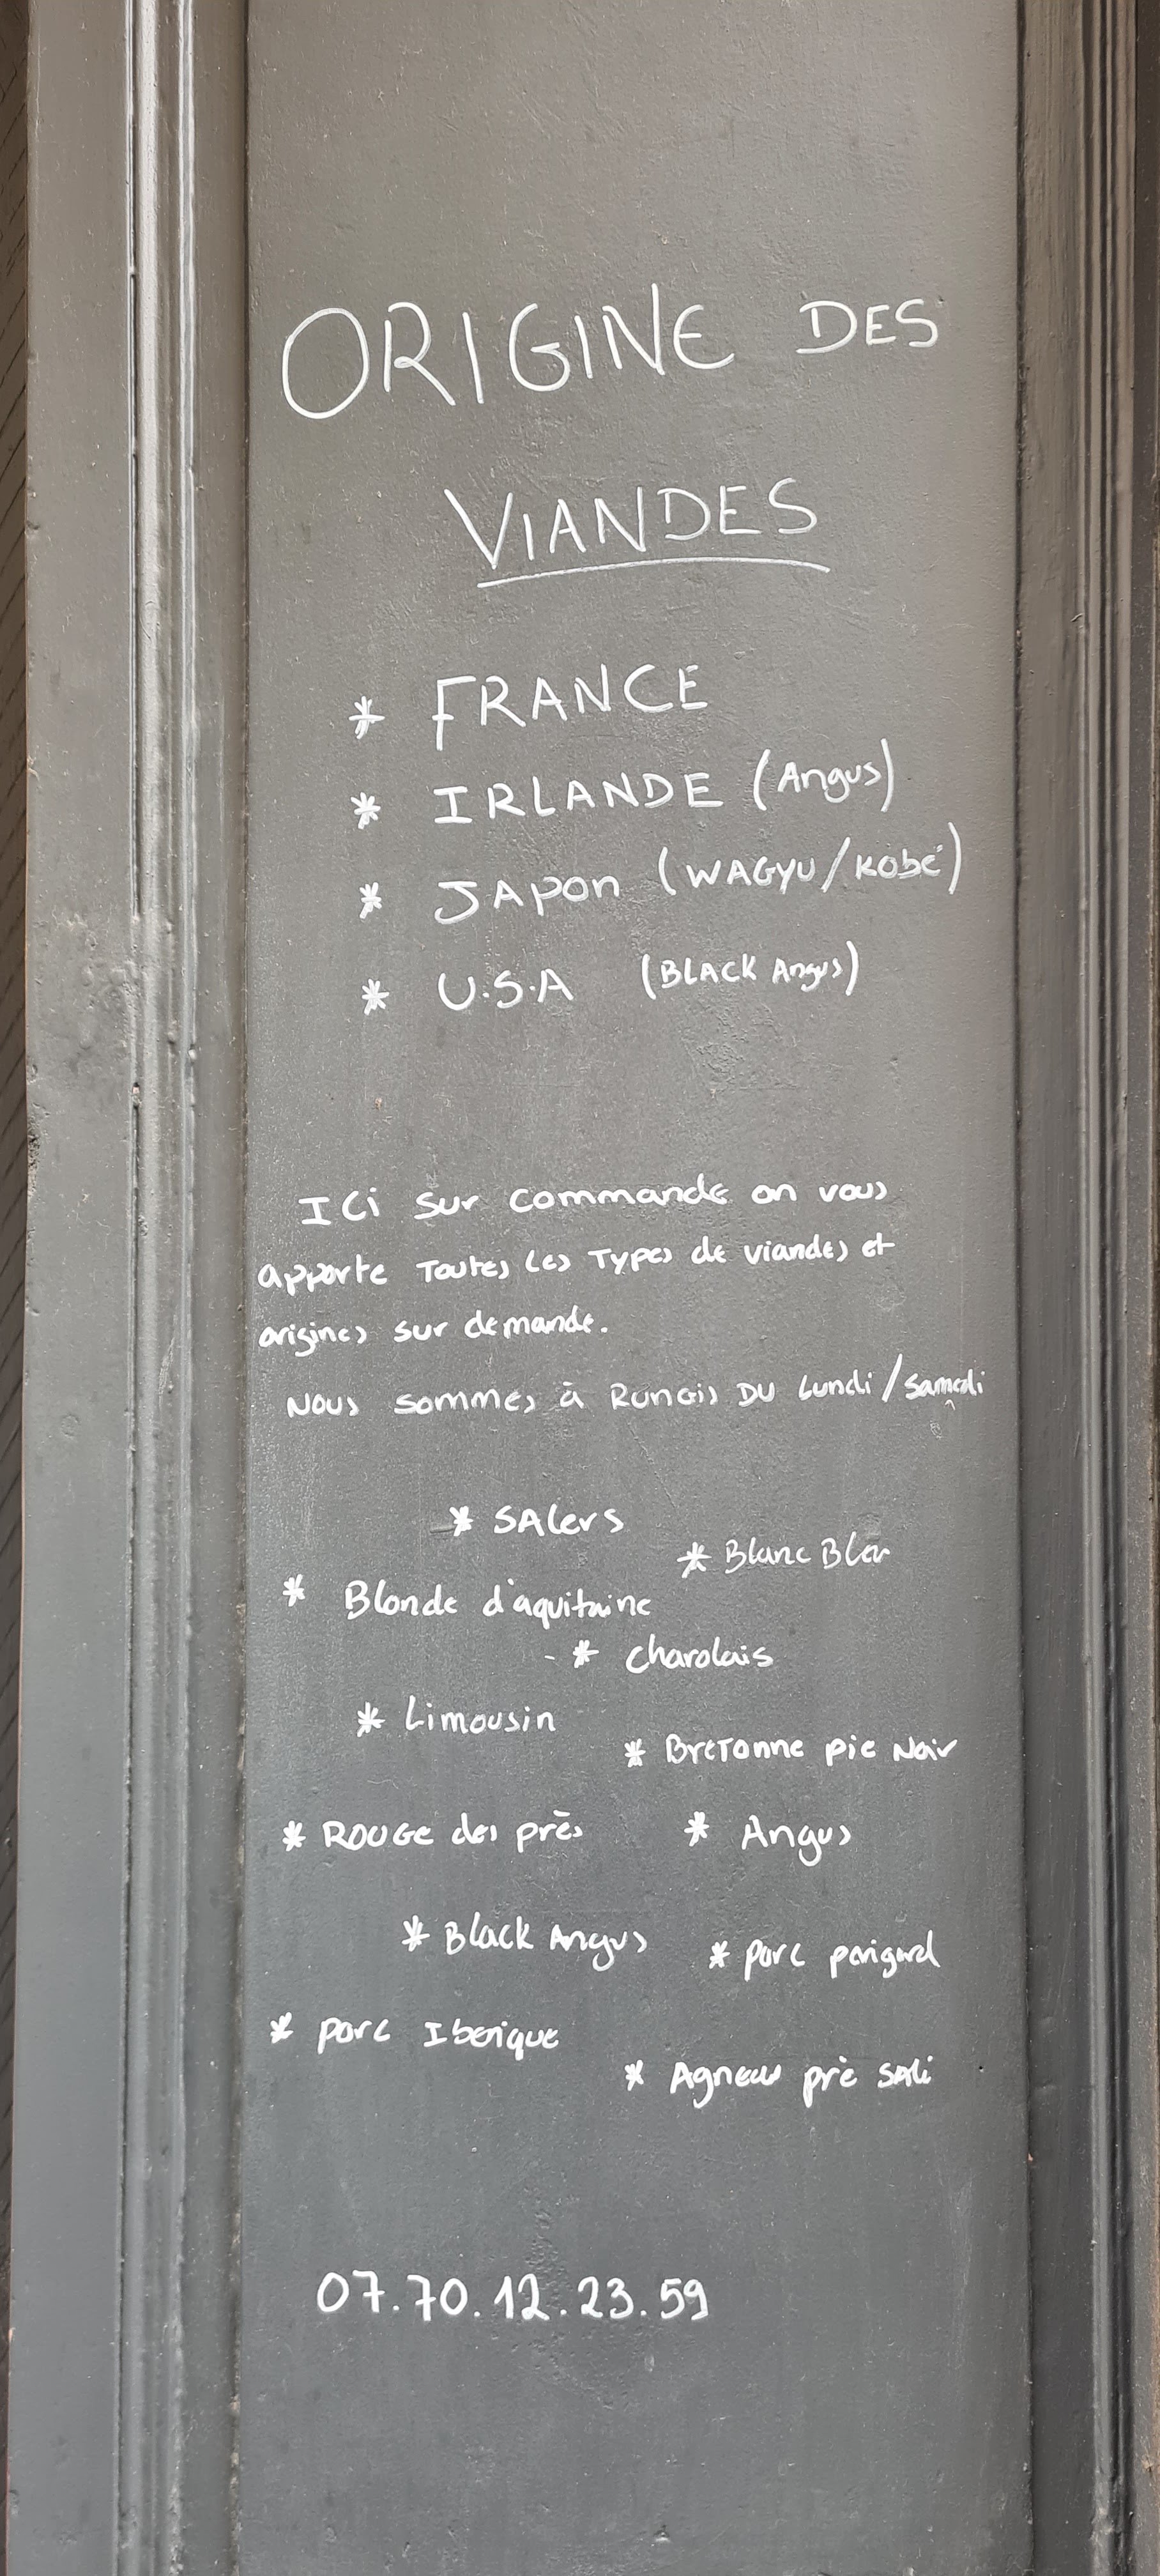 ORIGINE DES
VIANDES
* FRANCE
* IRLANDE (Angus)
* JAPON (WAGYU/KOBÉ)
* U.S.A (BLACK Angus)
ICi sur commande on vous
apporte Toutes les Types de viandes et
origines sur demande.
Nous sommes à RUNGis DU Lundi/Samedi
* SAlers
* Blanc Bleu
* Blonde d'aquitaine
- * charolais
* Limousin
* BreTonne pie Noir
* ROUGe des près
* Angus
* Black Angus
* porc perigord
* porc Iberique
* Agneau prè salé
07.70.12.23.59